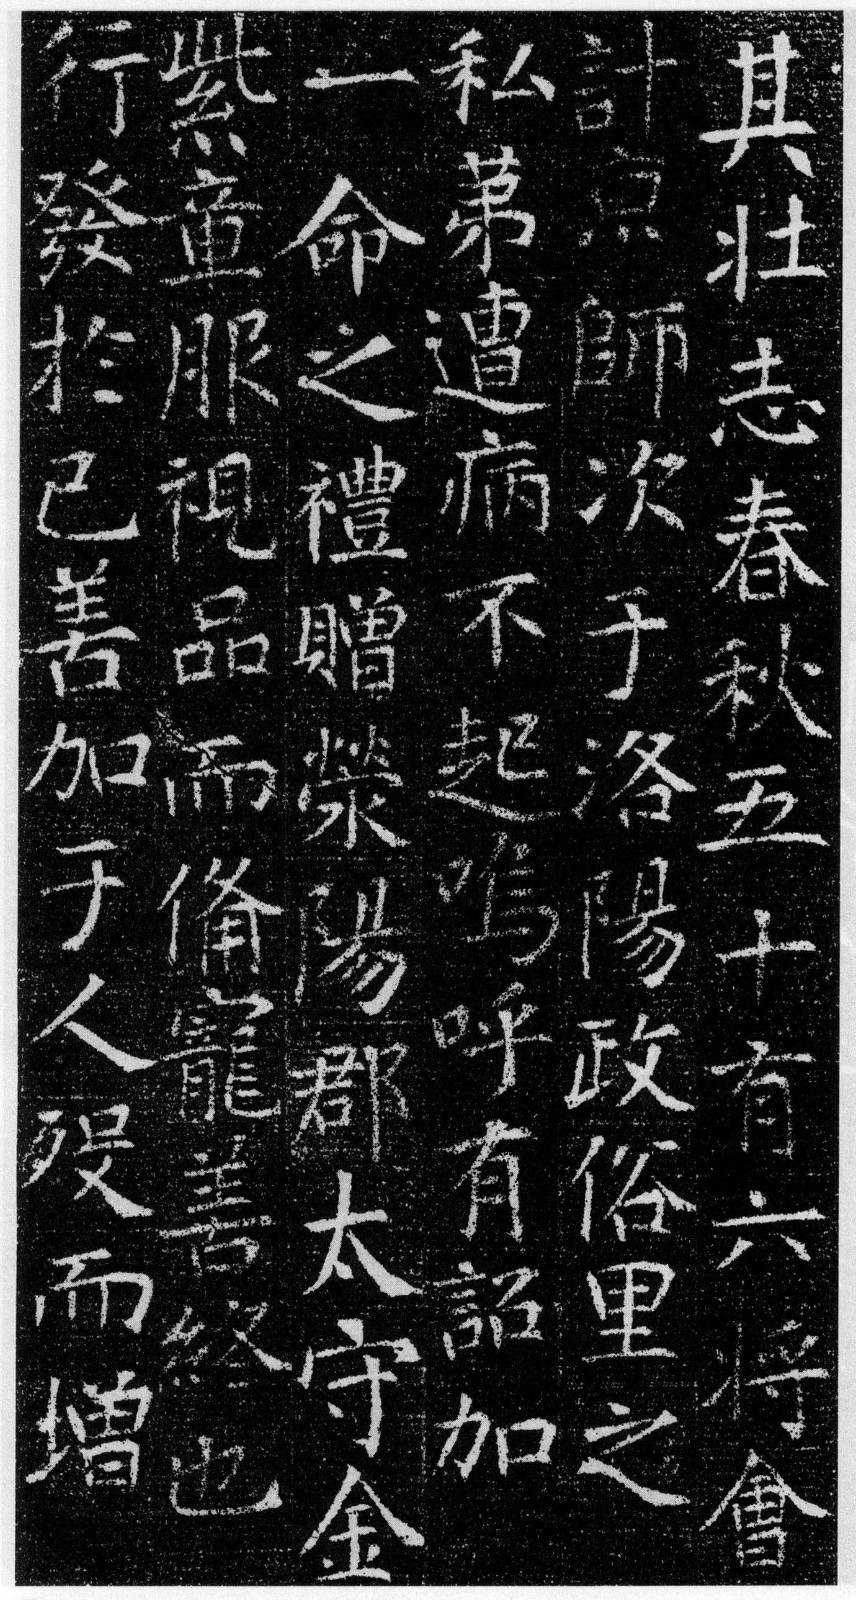 其壮志春秋五十有六将會
計京師次于洛陽政俗里之
私苐遭病不起嗚呼有詔加
一命之禮贈滎陽郡太守金
紫童服視品而俻寵善終也
行發於己善加于人殁而増